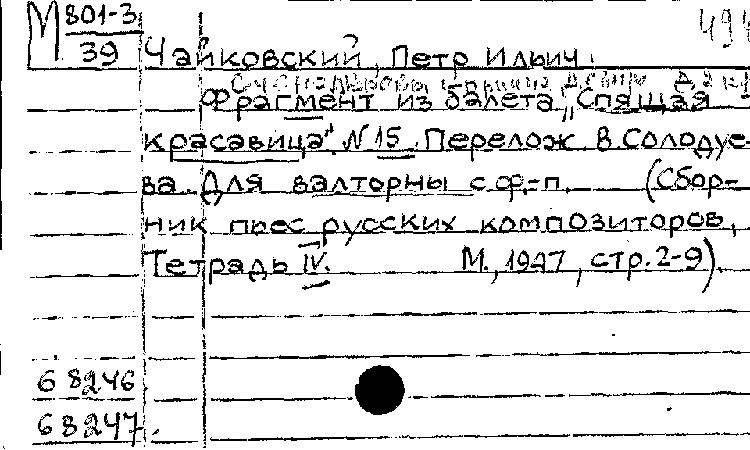 М 801-3
39
494
Чайковский, Петр Ильич.
Фрагмент из балета „Спящая
красавица" N 15. Перелож. В. Солодуе-
ва. Для валторны с ф.-п. (Сбор-
ник пьес русских композиторов,
Тетрадь IV. М., 1947, стр. 2-9).
68246
68247.